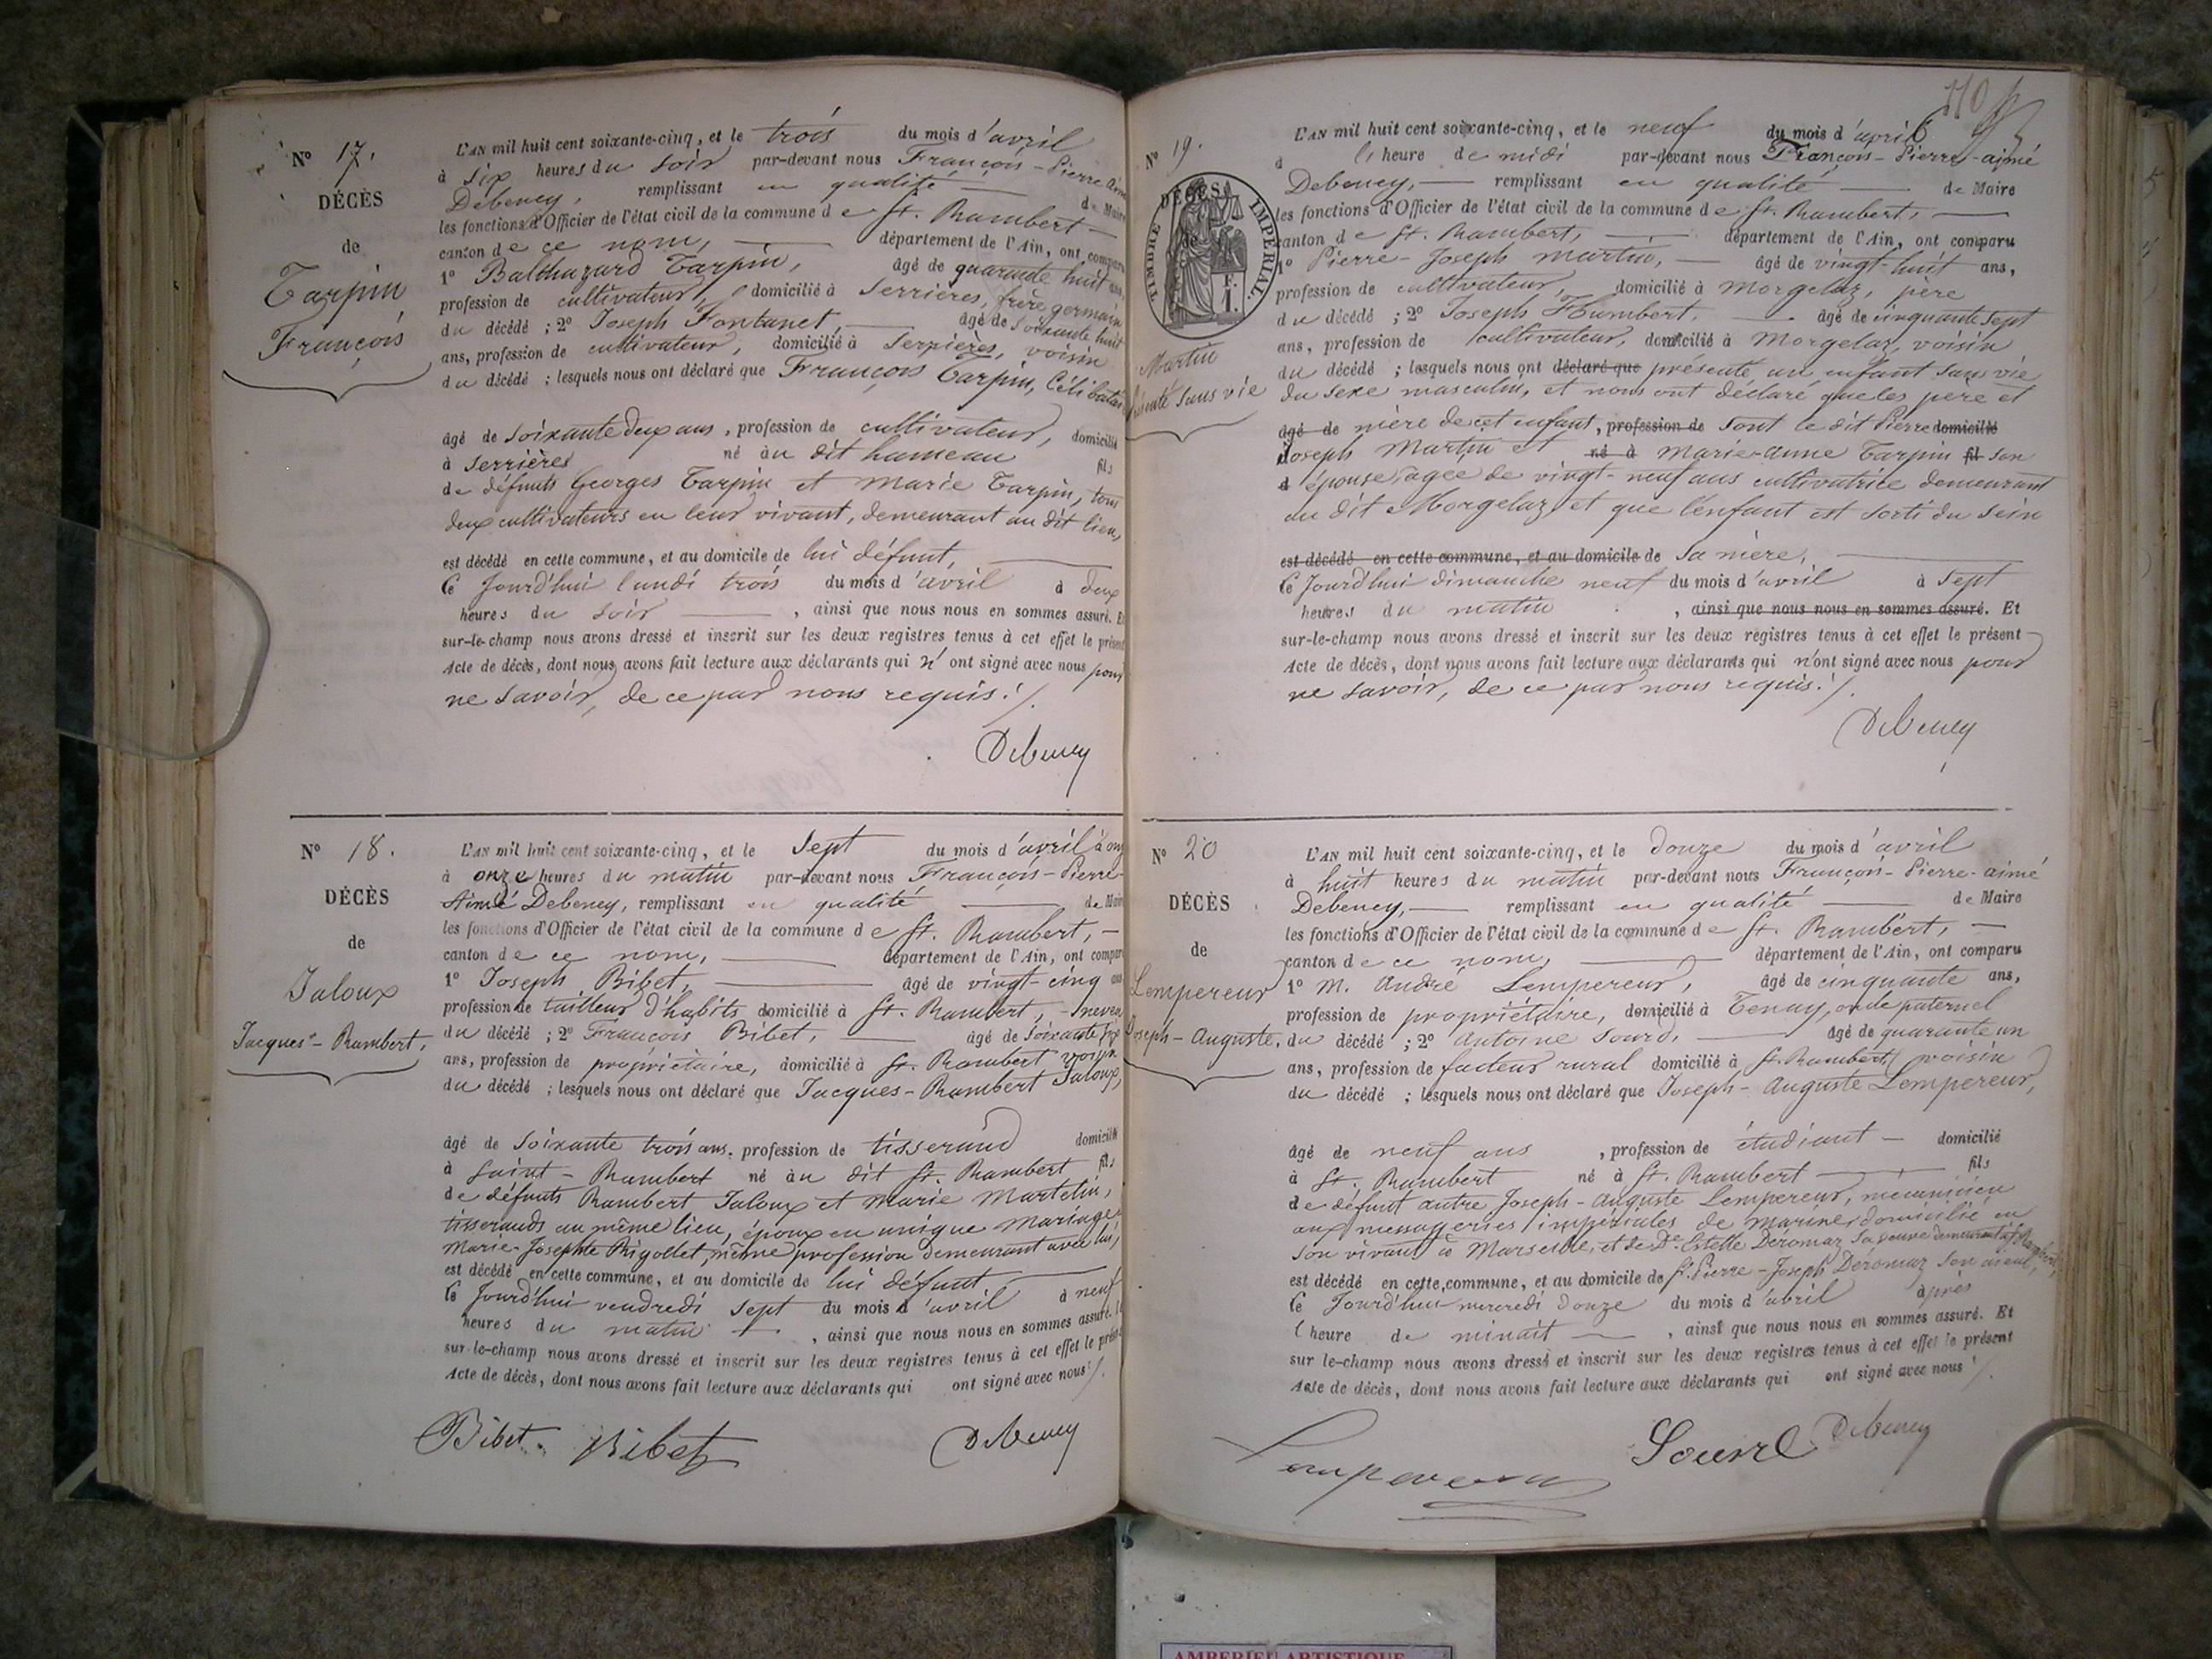 N° 17.
DÉCÈS
de
Tarpin
François
L'AN mil huit cent soixante-cinq, et le trois du mois d'avril
à six heures du soir par-devant nous François-Pierre Aimé
Debeney, remplissant en qualité de Maire
les fonctions d'Officier de l'état civil de la commune de St. Rambert
canton de ce nom, département de l'Ain, ont comparu
1° Balthazard Tarpin, âgé de quarante huit ans,
profession de cultivateur, domicilié à Serrières, frère germain
du décédé ; 2° Joseph Fontanet, âgé de soixante huit
ans, profession de cultivateur, domicilié à Serrières, voisin
du décédé ; lesquels nous ont déclaré que François Tarpin, Célibataire
âgé de soixante deux ans, profession de cultivateur, domicilié
à Serrières né au dit hameau fils
de défunts Georges Tarpin et Marie Tarpin, tous
deux cultivateurs en leur vivant, demeurant au dit lieu,
est décédé en cette commune, et au domicile de lui défunt,
Ce Jourd'hui lundi trois du mois d'avril à deux
heures du soir, ainsi que nous nous en sommes assuré. Et
sur-le-champ nous avons dressé et inscrit sur les deux registres tenus à cet effet le présent
Acte de décès, dont nous avons fait lecture aux déclarants qui n'ont signé avec nous pour
ne savoir, de ce par nous requis ./.
Debeney
N° 18.
DÉCÈS
de
Jaloux
Jacques-Rambert,
L'AN mil huit cent soixante-cinq, et le sept du mois d'avril
à onze heures du matin par-devant nous François-Pierre-
Aimé Debeney, remplissant en qualité de Maire
les fonctions d'Officier de l'état civil de la commune de St. Rambert,
canton de ce nom, département de l'Ain, ont comparu
1° Joseph Bibet, âgé de vingt-cinq ans
profession de tailleur d'habits domicilié à St. Rambert, neveu
du décédé ; 2° François Bibet, âgé de soixante
ans, profession de propriétaire, domicilié à St. Rambert voisin
du décédé ; lesquels nous ont déclaré que Jacques-Rambert Jaloux,
âgé de soixante trois ans, profession de tisserand domicilié
à Saint-Rambert né au dit St. Rambert fils
de défunts Rambert Jaloux et Marie Martelin,
tisserands au même lieu, époux en unique Mariage
Marie-Josephte Rigollet, même profession demeurant avec lui,
est décédé en cette commune, et au domicile de lui défunt,
Ce Jourd'hui vendredi sept du mois d'avril à neuf
heures du matin, ainsi que nous nous en sommes assuré. Et
sur-le-champ nous avons dressé et inscrit sur les deux registres tenus à cet effet le présent
Acte de décès, dont nous avons fait lecture aux déclarants qui ont signé avec nous ./.
Bibet. Bibet Debeney
110
N° 19.
DÉCÈS
de
TIMBRE IMPÉRIAL.
F. I.
Martin
présenté sans vie
L'AN mil huit cent soixante-cinq, et le neuf du mois d'avril
à l'heure de midi par-devant nous François-Pierre-aimé
Debeney, remplissant en qualité de Maire
les fonctions d'Officier de l'état civil de la commune de St. Rambert,
canton de St. Rambert, département de l'Ain, ont comparu
1° Pierre-Joseph Martin, âgé de vingt-huit ans,
profession de cultivateur, domicilié à Morgelaz, père
du décédé ; 2° Joseph Humbert, âgé de cinquante sept
ans, profession de cultivateur, domicilié à Morgelaz, voisin
du décédé ; lesquels nous ont déclaré que présenté un enfant sans vie
du sexe masculin, et nous ont déclaré que les père et
âgé de mère de cet enfant, profession de sont le dit Pierre domicilié
Joseph Martin et né à Marie-Anne Tarpin fil son
d épouse, agée de vingt-neuf ans cultivatrice demeurant
au dit Morgelaz, et que l'enfant est sorti du sein
est décédé en cette commune, et au domicile de sa mère,
Ce Jourd'hui dimanche neuf du mois d'avril à sept
heures du matin, ainsi que nous nous en sommes assuré. Et
sur-le-champ nous avons dressé et inscrit sur les deux registres tenus à cet effet le présent
Acte de décès, dont nous avons fait lecture aux déclarants qui n'ont signé avec nous pour
ne savoir, de ce par nous requis ./.
Debeney
N° 20
DÉCÈS
de
Lempereur
Joseph-Auguste.
L'AN mil huit cent soixante-cinq, et le douze du mois d'avril
à huit heures du matin par-devant nous François-Pierre-aimé
Debeney, remplissant en qualité de Maire
les fonctions d'Officier de l'état civil de la commune de St. Rambert,
canton de ce nom, département de l'Ain, ont comparu
1° M. André Lempereur, âgé de cinquante ans,
profession de propriétaire, domicilié à Tenay, oncle paternel
du décédé ; 2° Antoine Sourd, âgé de quarante un
ans, profession de facteur rural domicilié à St. Rambert, voisin
du décédé ; lesquels nous ont déclaré que Joseph-Auguste Lempereur,
âgé de neuf ans, profession de étudiant domicilié
à St. Rambert né à St. Rambert fils
de défunt autre Joseph-Auguste Lempereur, mécanicien
aux messageries impériales de marine, domicilié en
son vivant à Marseille, et de De Estelle Deromaz sa veuve demeurant à St. Rambert,
est décédé en cette commune, et au domicile de Sr. Pierre-Joseph Déromaz son aieul,
Ce Jourd'hui mercredi douze du mois d'avril après
l'heure de minuit, ainsi que nous nous en sommes assuré. Et
sur le-champ nous avons dressé et inscrit sur les deux registres tenus à cet effet le présent
Acte de décès, dont nous avons fait lecture aux déclarants qui ont signé avec nous ./.
Lempereur Sourd Debeney
AMBERIEU ARTISTIQUE